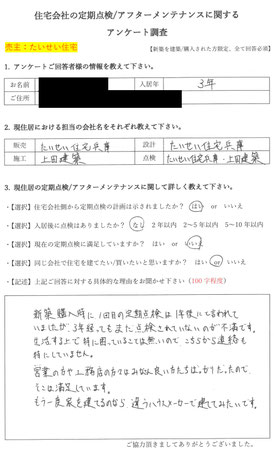 住宅会社の定期点検/アフターメンテナンスに関する
アンケート調査
売主：たいせい住宅
【新築を建築/購入された方限定、全て回答必須】
1. アンケートご回答者様の情報を教えて下さい。
お名前 入居年 3年
ご住所
2. 現住居における担当の会社名をそれぞれ教えて下さい。
販売 たいせい住宅兵庫 設計 たいせい住宅兵庫
施工 上田建築 点検 たいせい住宅兵庫・上田建築
3. 現住居の定期点検/アフターメンテナンスに関して詳しく教えて下さい。
・【選択】住宅会社側から定期点検の計画は示されましたか？ はい or いいえ
・【選択】入居後に点検はありましたか？ なし 2年以内 2～5年以内 5～10年以内
・【選択】現在の定期点検に満足していますか？ はい or いいえ
・【選択】同じ会社で住宅を建てたい/買いたいと思いますか？ はい or いいえ
・【記述】上記ご回答に対する具体的な理由をお聞かせ下さい（100字程度）
新築購入時に1回目の定期点検は1年後にて言われて
いましたが、3年経ってもまだ点検されていないのが不満です。
生活する上で特に困っていることは無いので こちらから連絡も
特にしていません。
営業の方や工務店の方々はみなさん良い方たちばかりだったので
そこは満足しています。
もう一度家を建てるのなら 違うハウスメーカーで建ててみたいです。
ご協力頂きましてありがとうございました。